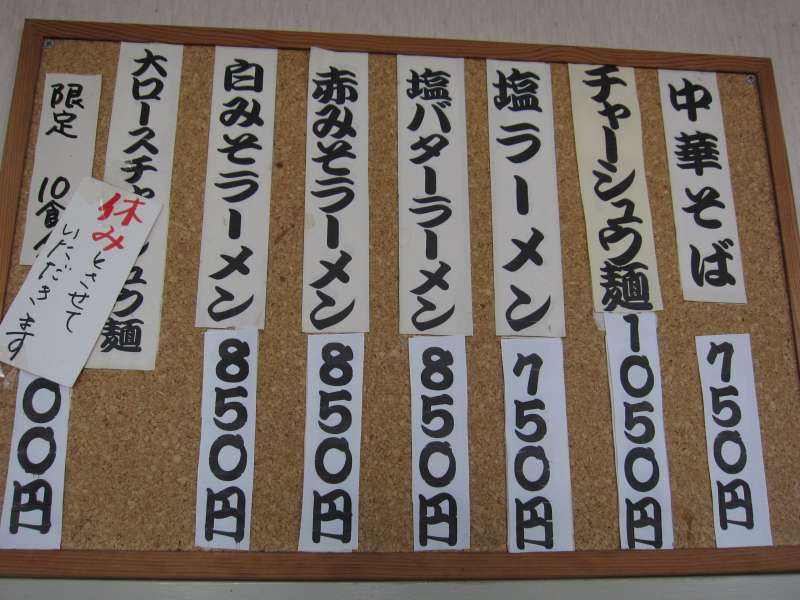 中華そば
750円
チャーシュウ麺
1050円
塩ラーメン
750円
塩バターラーメン
850円
赤みそラーメン
850円
白みそラーメン
850円
大ロースチャ
ュウ麺
限定 10食
00円
休みとさせて
いただきます